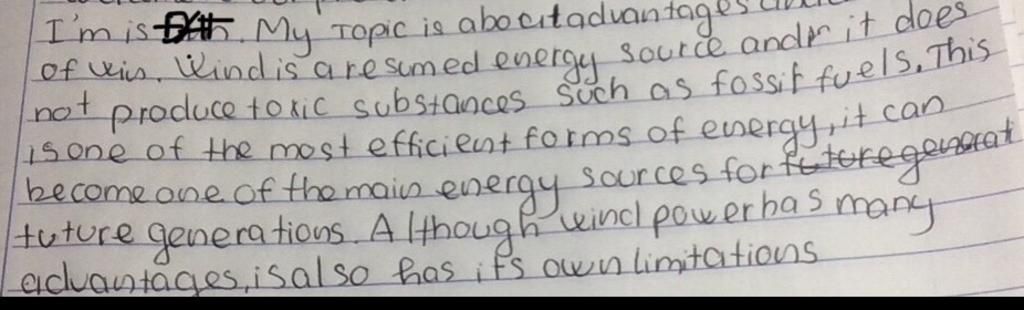 I'm is. My Topic is about advantages
of win. Wind is a resumed energy source and it does
not produce toxic substances such as fossil fuels. This
is one of the most efficient forms of energy, it can
become one of the main energy sources for future generat
future generations. Although wind power has many
advantages, is also has its own limitations